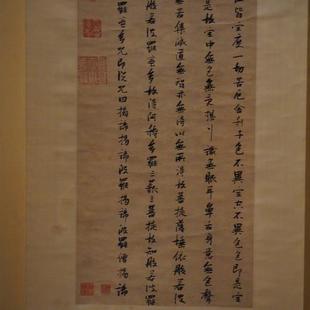 皆空度一切苦厄舍利子色不異空空不異色色即是空
是故空中無色無受想行識無眼耳鼻舌身意無色聲
無苦集滅道無智亦無得以無所得故菩提薩埵依般若波
般若波羅蜜多故得阿耨多羅三藐三菩提故知般若波羅
羅蜜多咒即說咒曰揭諦揭諦波羅揭諦波羅僧揭諦